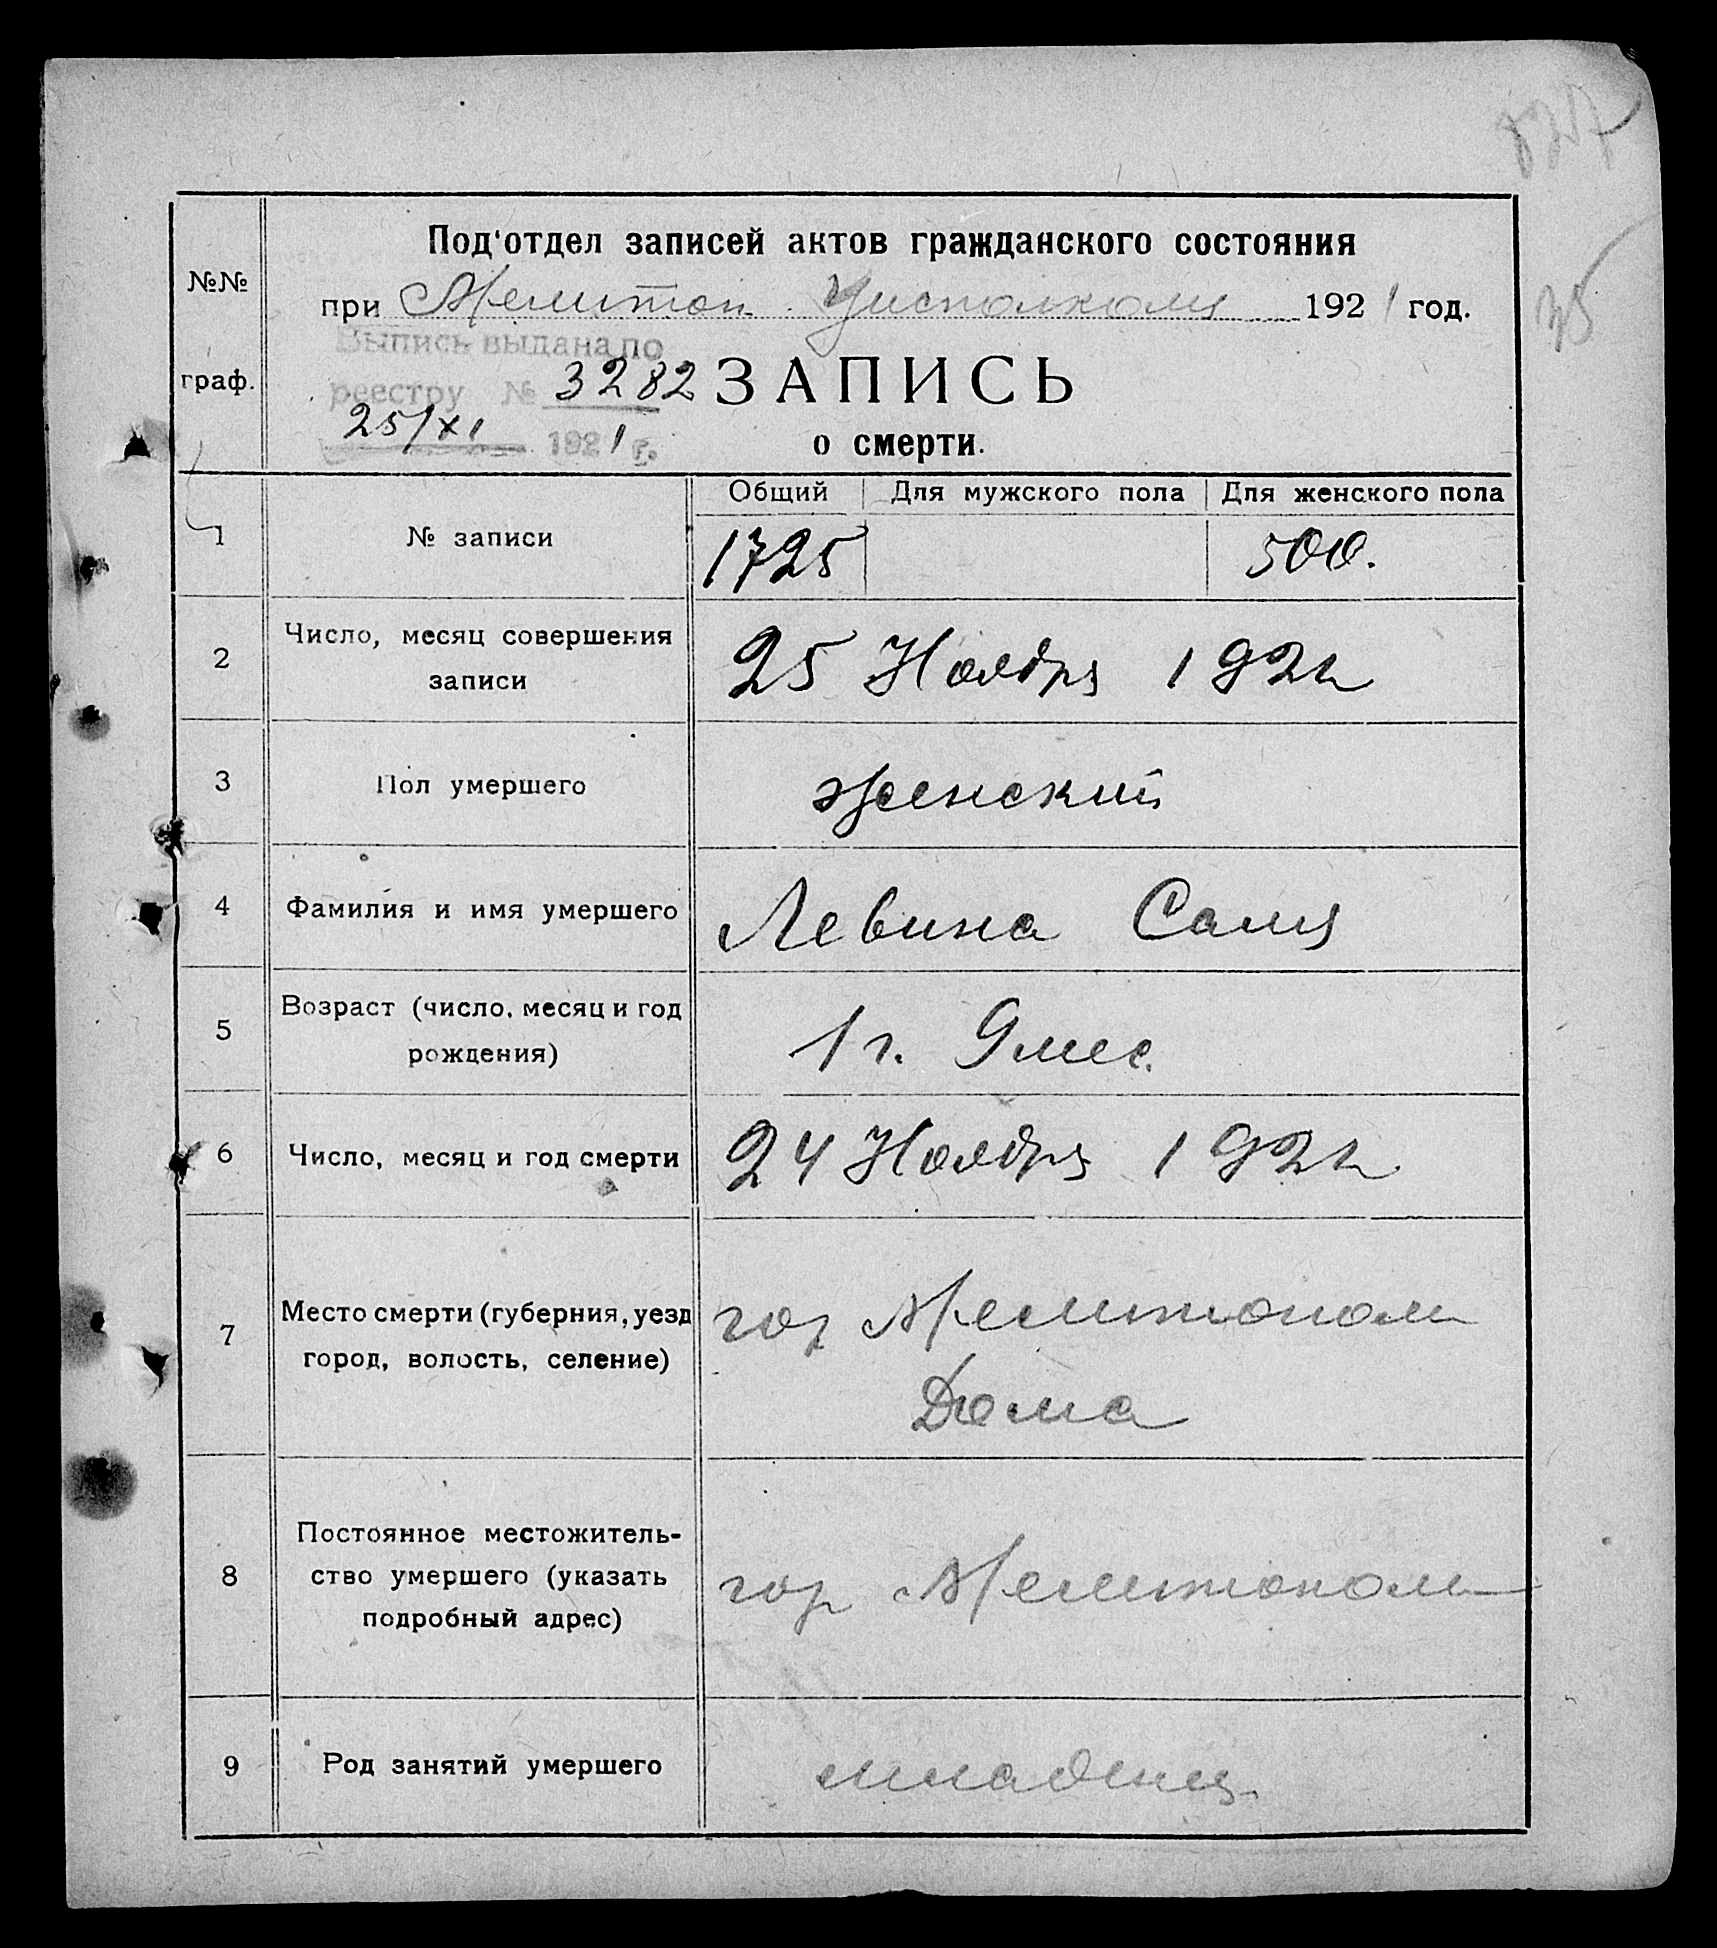 Под'отдел записей актов гражданского состояния
№№
при Мелитоп. Уисполкома 1921 год.
Выпись выдана по
реестру № 3282
ЗАПИСЬ
граф.
25/XI 1921 г.
о смерти.
Общий Для мужского пола Для женского пола
1 № записи 1725 500.
2 Число, месяц совершения
записи
25 Ноября 1921
3 Пол умершего женский
4 Фамилия и имя умершего Левина Саля
5 Возраст (число, месяц и год
рождения)
1 г. 9 мес.
6 Число, месяц и год смерти 24 Ноября 1921
7 Место смерти (губерния, уезд
город, волость, селение)
гор Мелитополь
Дома
8 Постоянное местожитель-
ство умершего (указать
подробный адрес)
гор Мелитополь
9 Род занятий умершего младенец